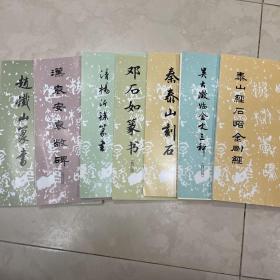 赵铁山篆书
漢袁安袁敞碑
清杨沂孙篆书
邓石如篆书
秦泰山刻石
吴大澂临金文三种
泰山經石峪金剛經